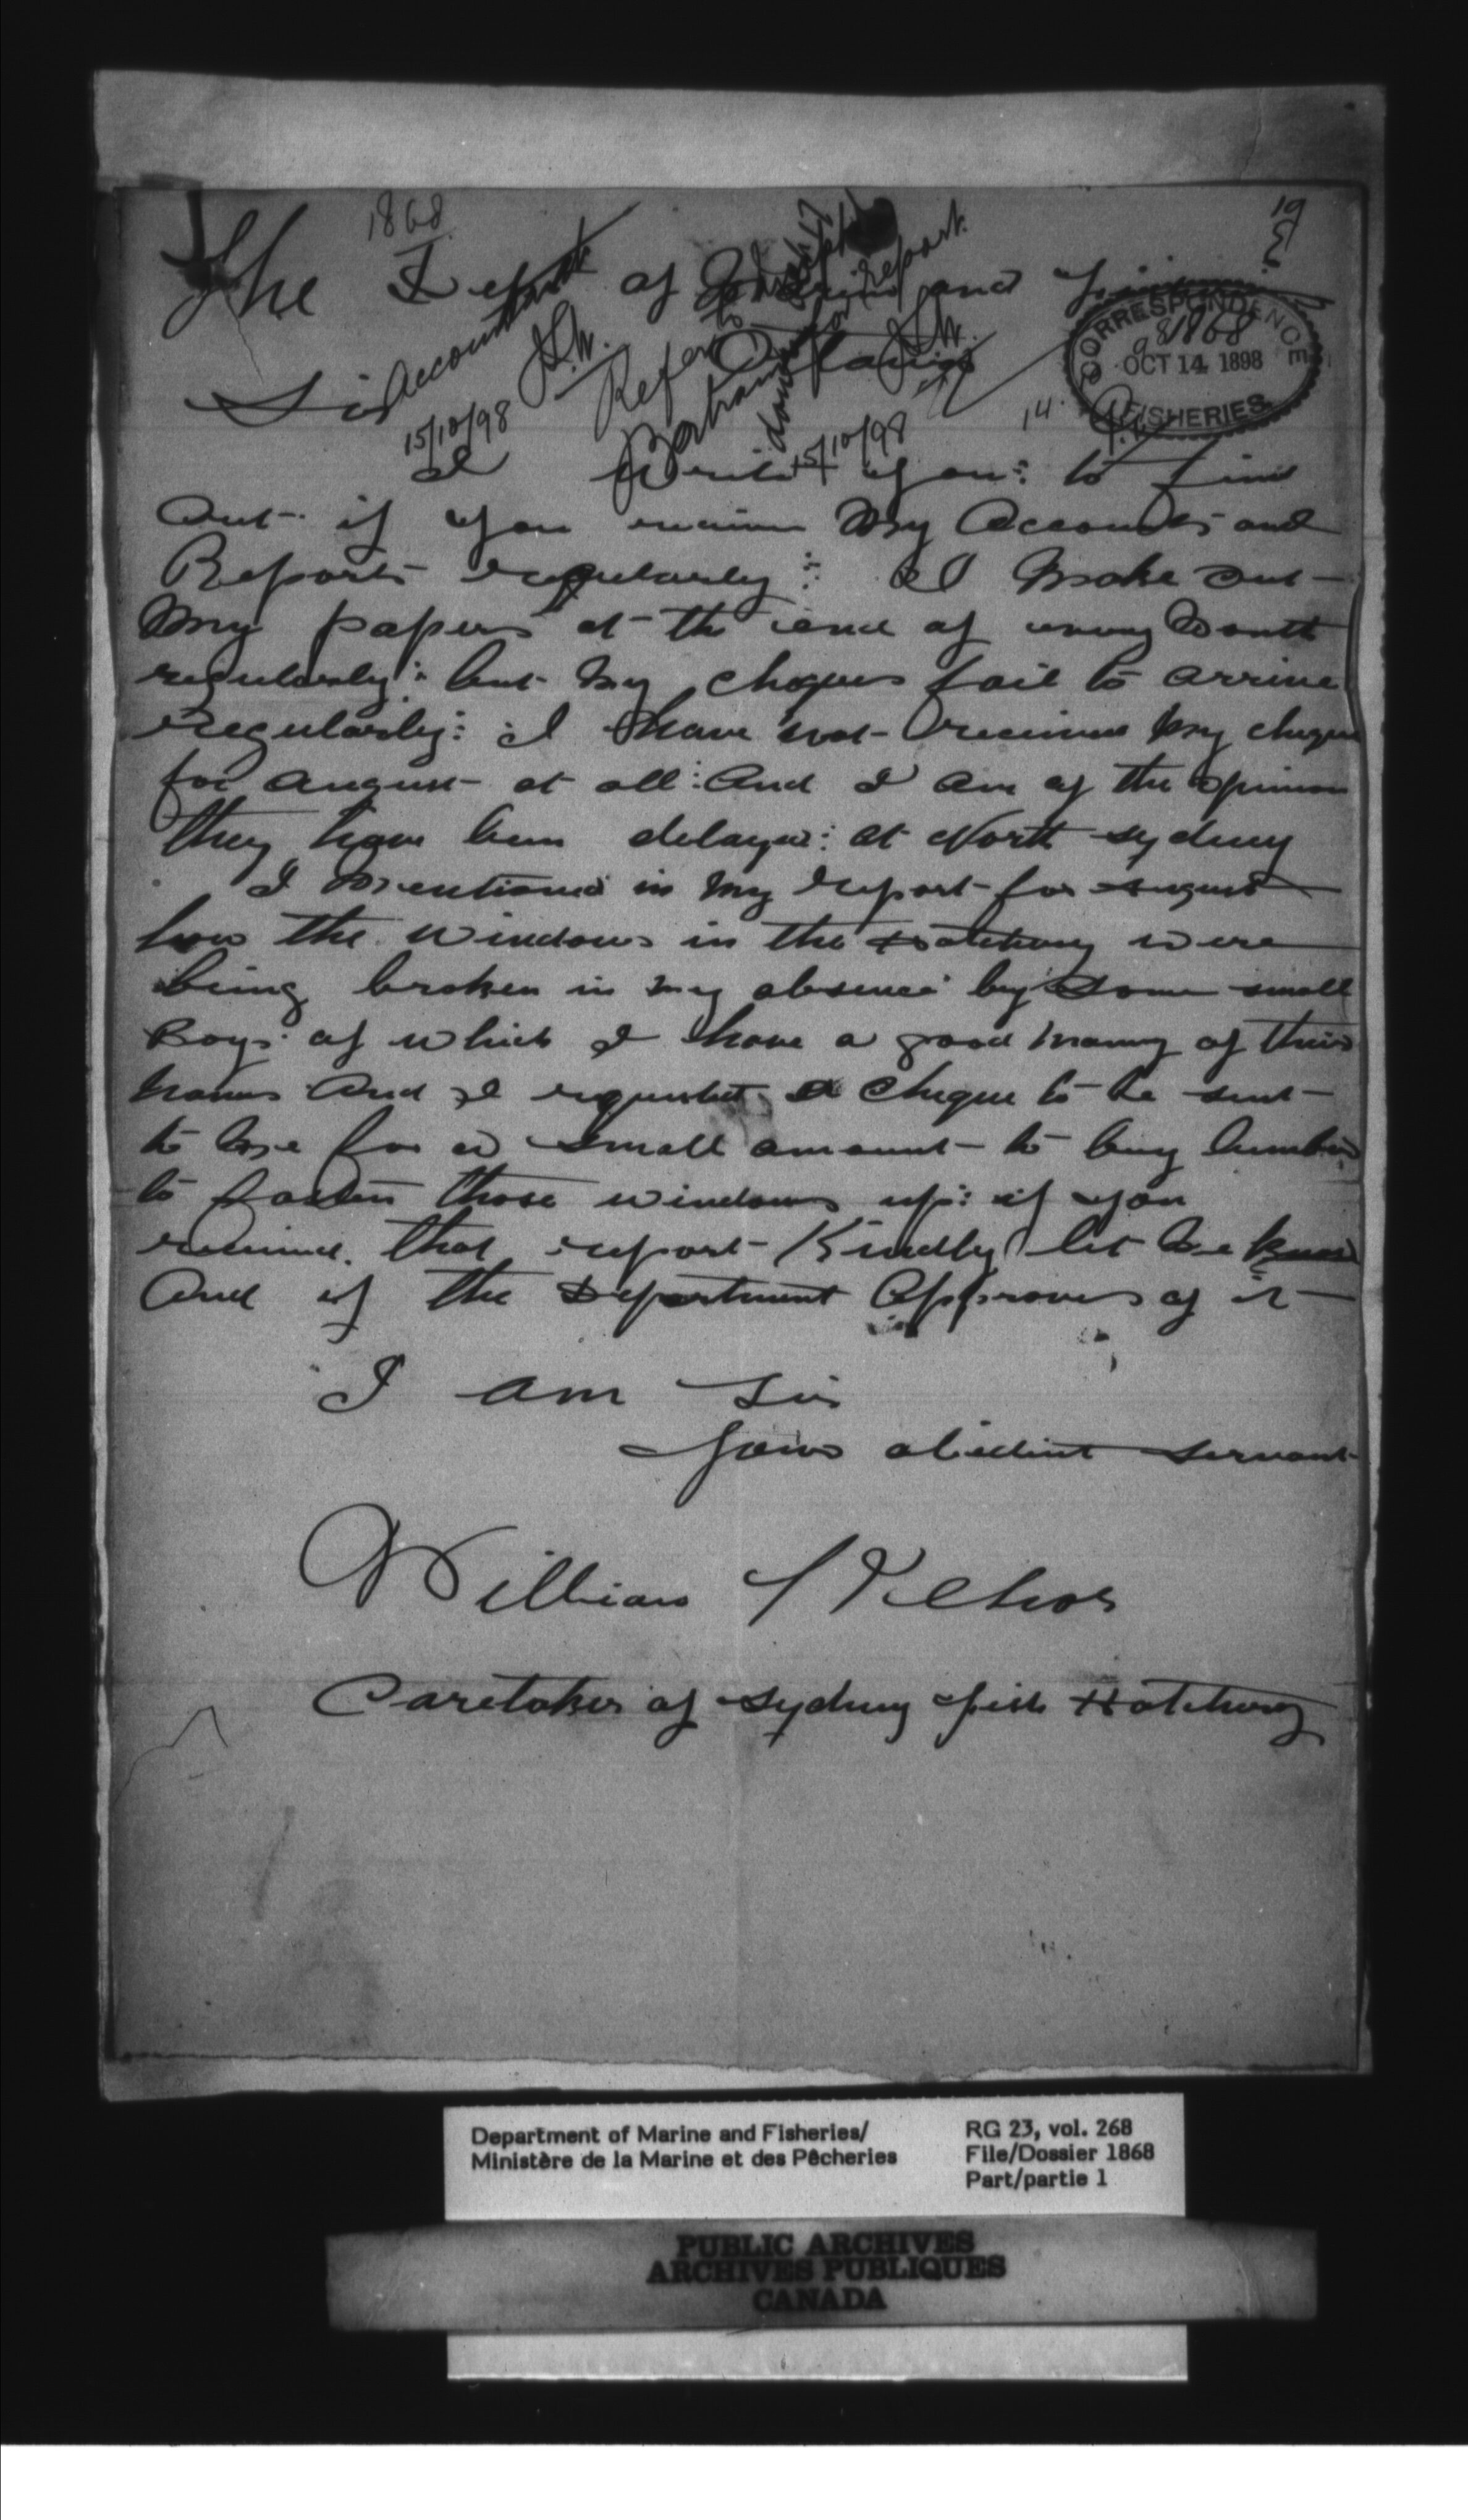 1868
19
The Dept of Marine and Fisheries
Ottawa
Accountant
15/10/98
Refer to
for report.
15/10/98
CORRESPONDENCE
1868
OCT 14 1898
FISHERIES
14.
Sir
I Write you: to find
out if you receive My Accounts and
Reports regularly: I Make out
My papers at the end of every Month
regularly: but My cheques fail to arrive
regularly: I have not received My cheque
for August at all: And I am of the opinion
they have been delayed: at North Sydney
I Mentioned in My report for August
how the windows in the Hatchery were
being broken in My absence by Some small
Boys of which I have a good Many of their
names And I requested a Cheque to be sent
to Me for a Small amount to buy lumber
to fasten those windows up: if you
received that report Kindly let Me know
And if the Department Approves of it
I am Sir
Yours obedient Servant
William
Caretaker of Sydney Fish Hatchery
Department of Marine and Fisheries/
Ministère de la Marine et des Pêcheries
RG 23, vol. 268
File/Dossier 1868
Part/partie 1
PUBLIC ARCHIVES
ARCHIVES PUBLIQUES
CANADA